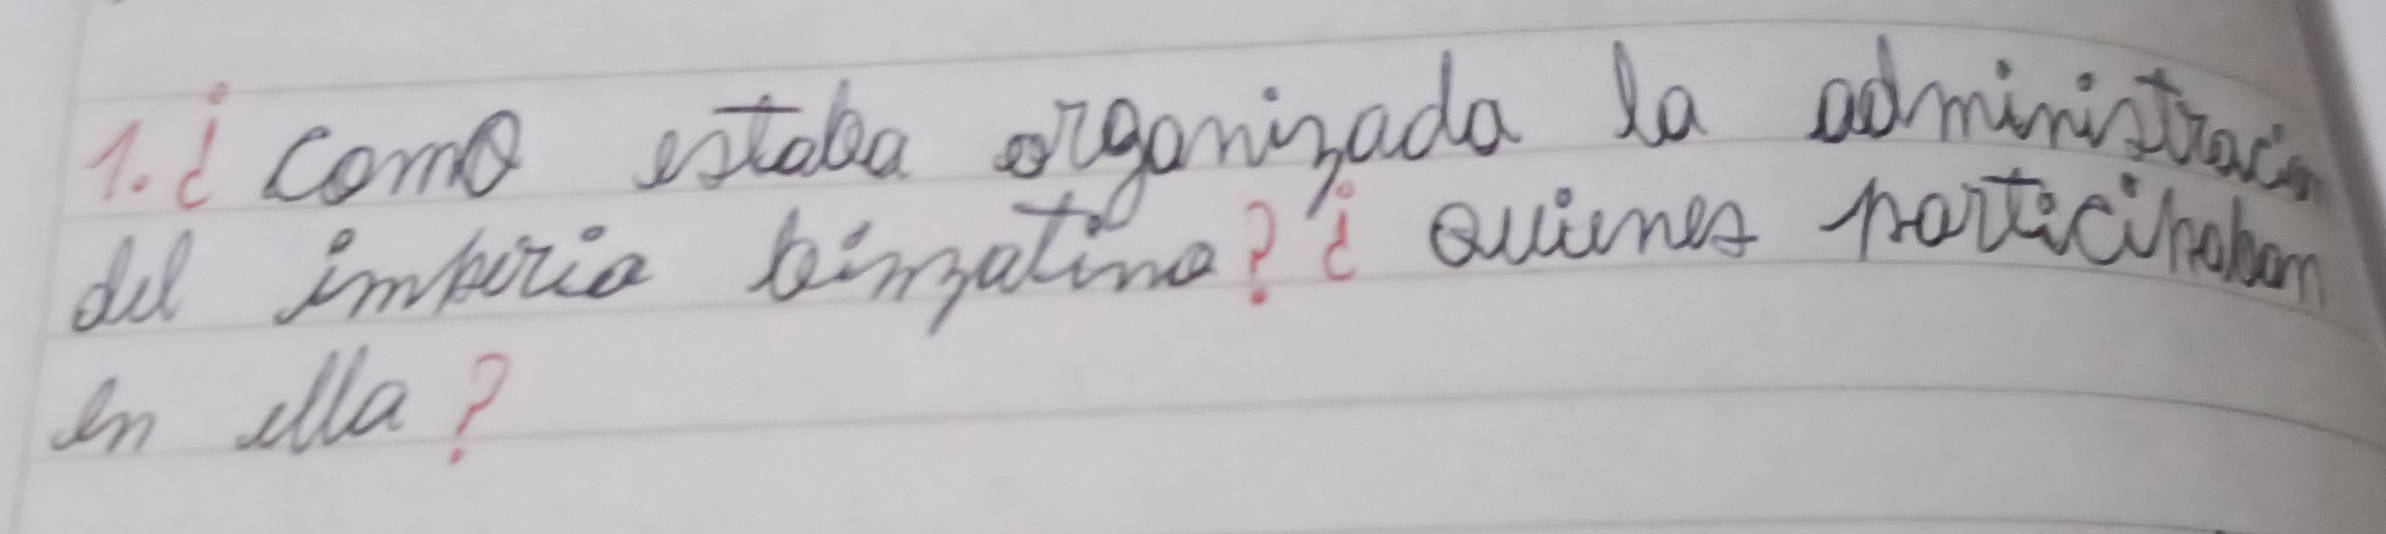 1. ¿ como estaba organizada la administracion
del imperio binzatino? ¿ quienes participaban
en ella?